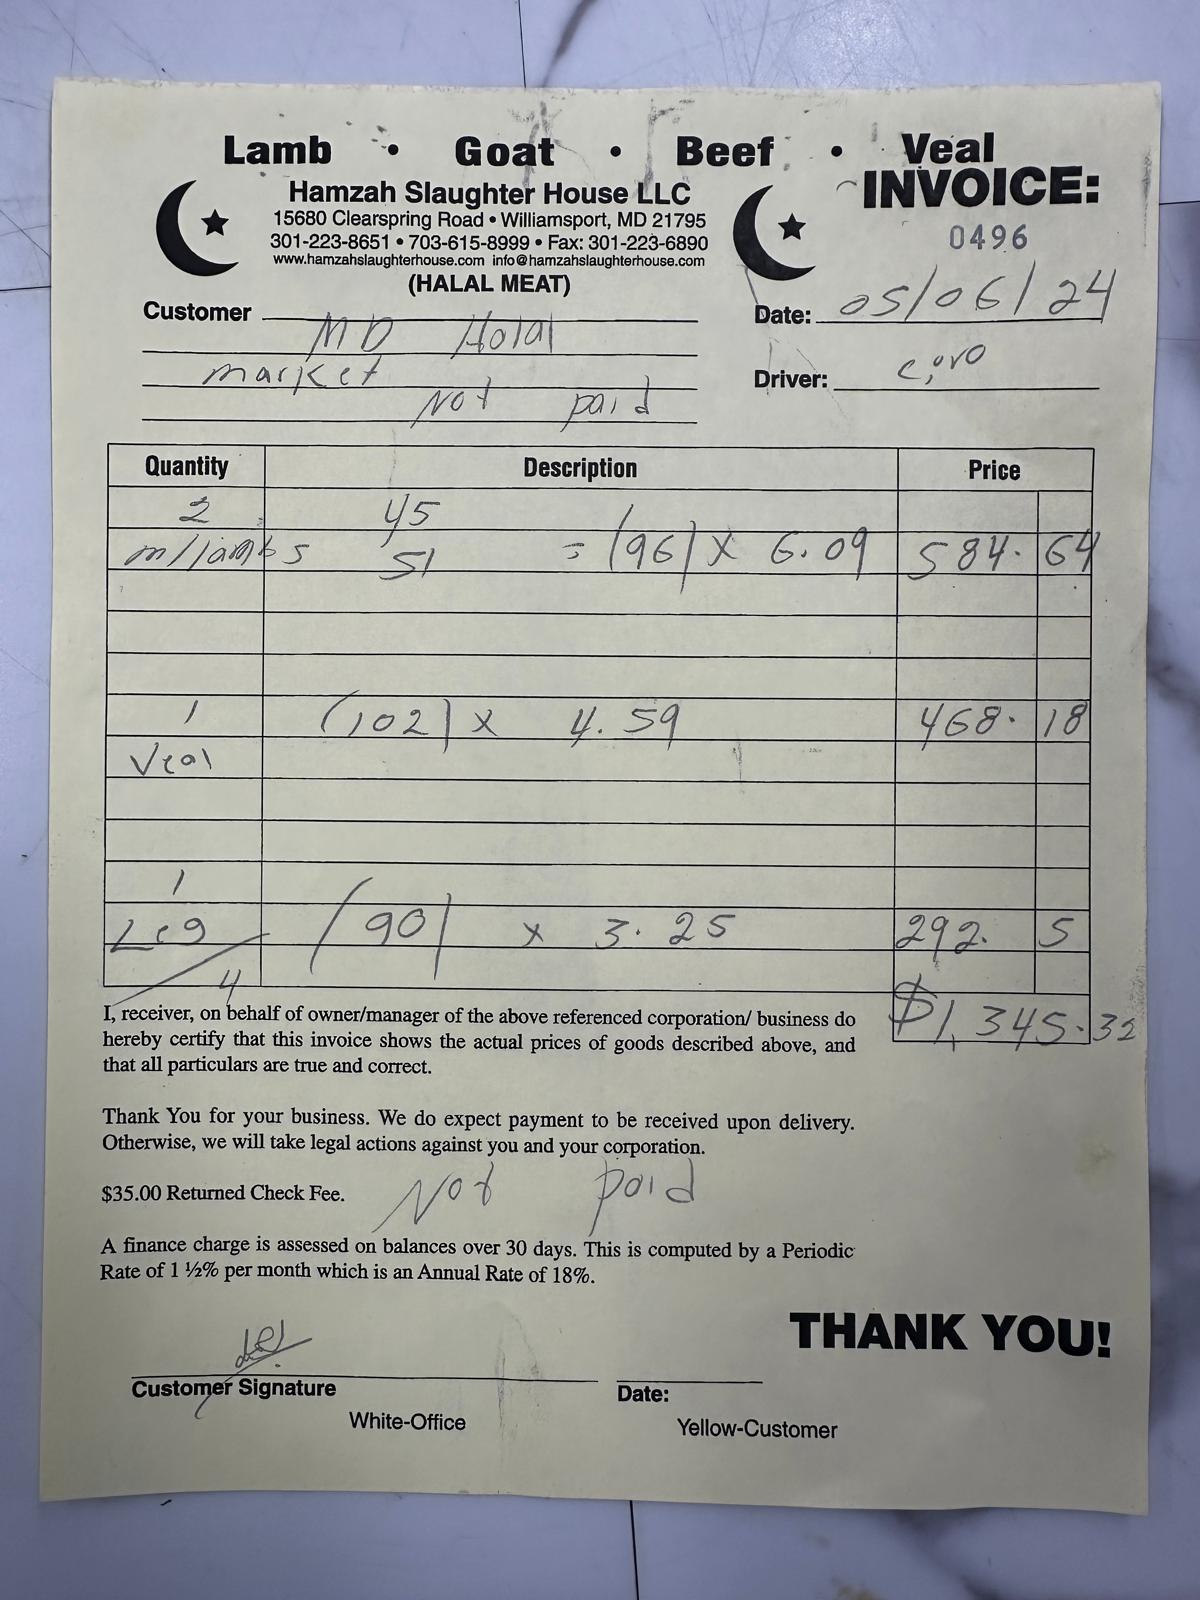 Lamb • Goat • Beef • Veal
INVOICE:
Hamzah Slaughter House LLC
15680 Clearspring Road • Williamsport, MD 21795
0496
301-223-8651 • 703-615-8999 • Fax: 301-223-6890
www.hamzahslaughterhouse.com info@hamzahslaughterhouse.com
(HALAL MEAT)
Date: 05/06/24
Customer MD Halal
market
Driver:
Not paid
Quantity Description Price
2 45
m/lambs 51 = (96) x 6.09 584. 64
1 (102) x 4.59 468. 18
Veal
1
Leg (90) x 3.25 292. 5
4
$1,345.32
I, receiver, on behalf of owner/manager of the above referenced corporation/ business do
hereby certify that this invoice shows the actual prices of goods described above, and
that all particulars are true and correct.
Thank You for your business. We do expect payment to be received upon delivery.
Otherwise, we will take legal actions against you and your corporation.
$35.00 Returned Check Fee. Not paid
A finance charge is assessed on balances over 30 days. This is computed by a Periodic
Rate of 1 ½% per month which is an Annual Rate of 18%.
THANK YOU!
Customer Signature Date:
White-Office Yellow-Customer